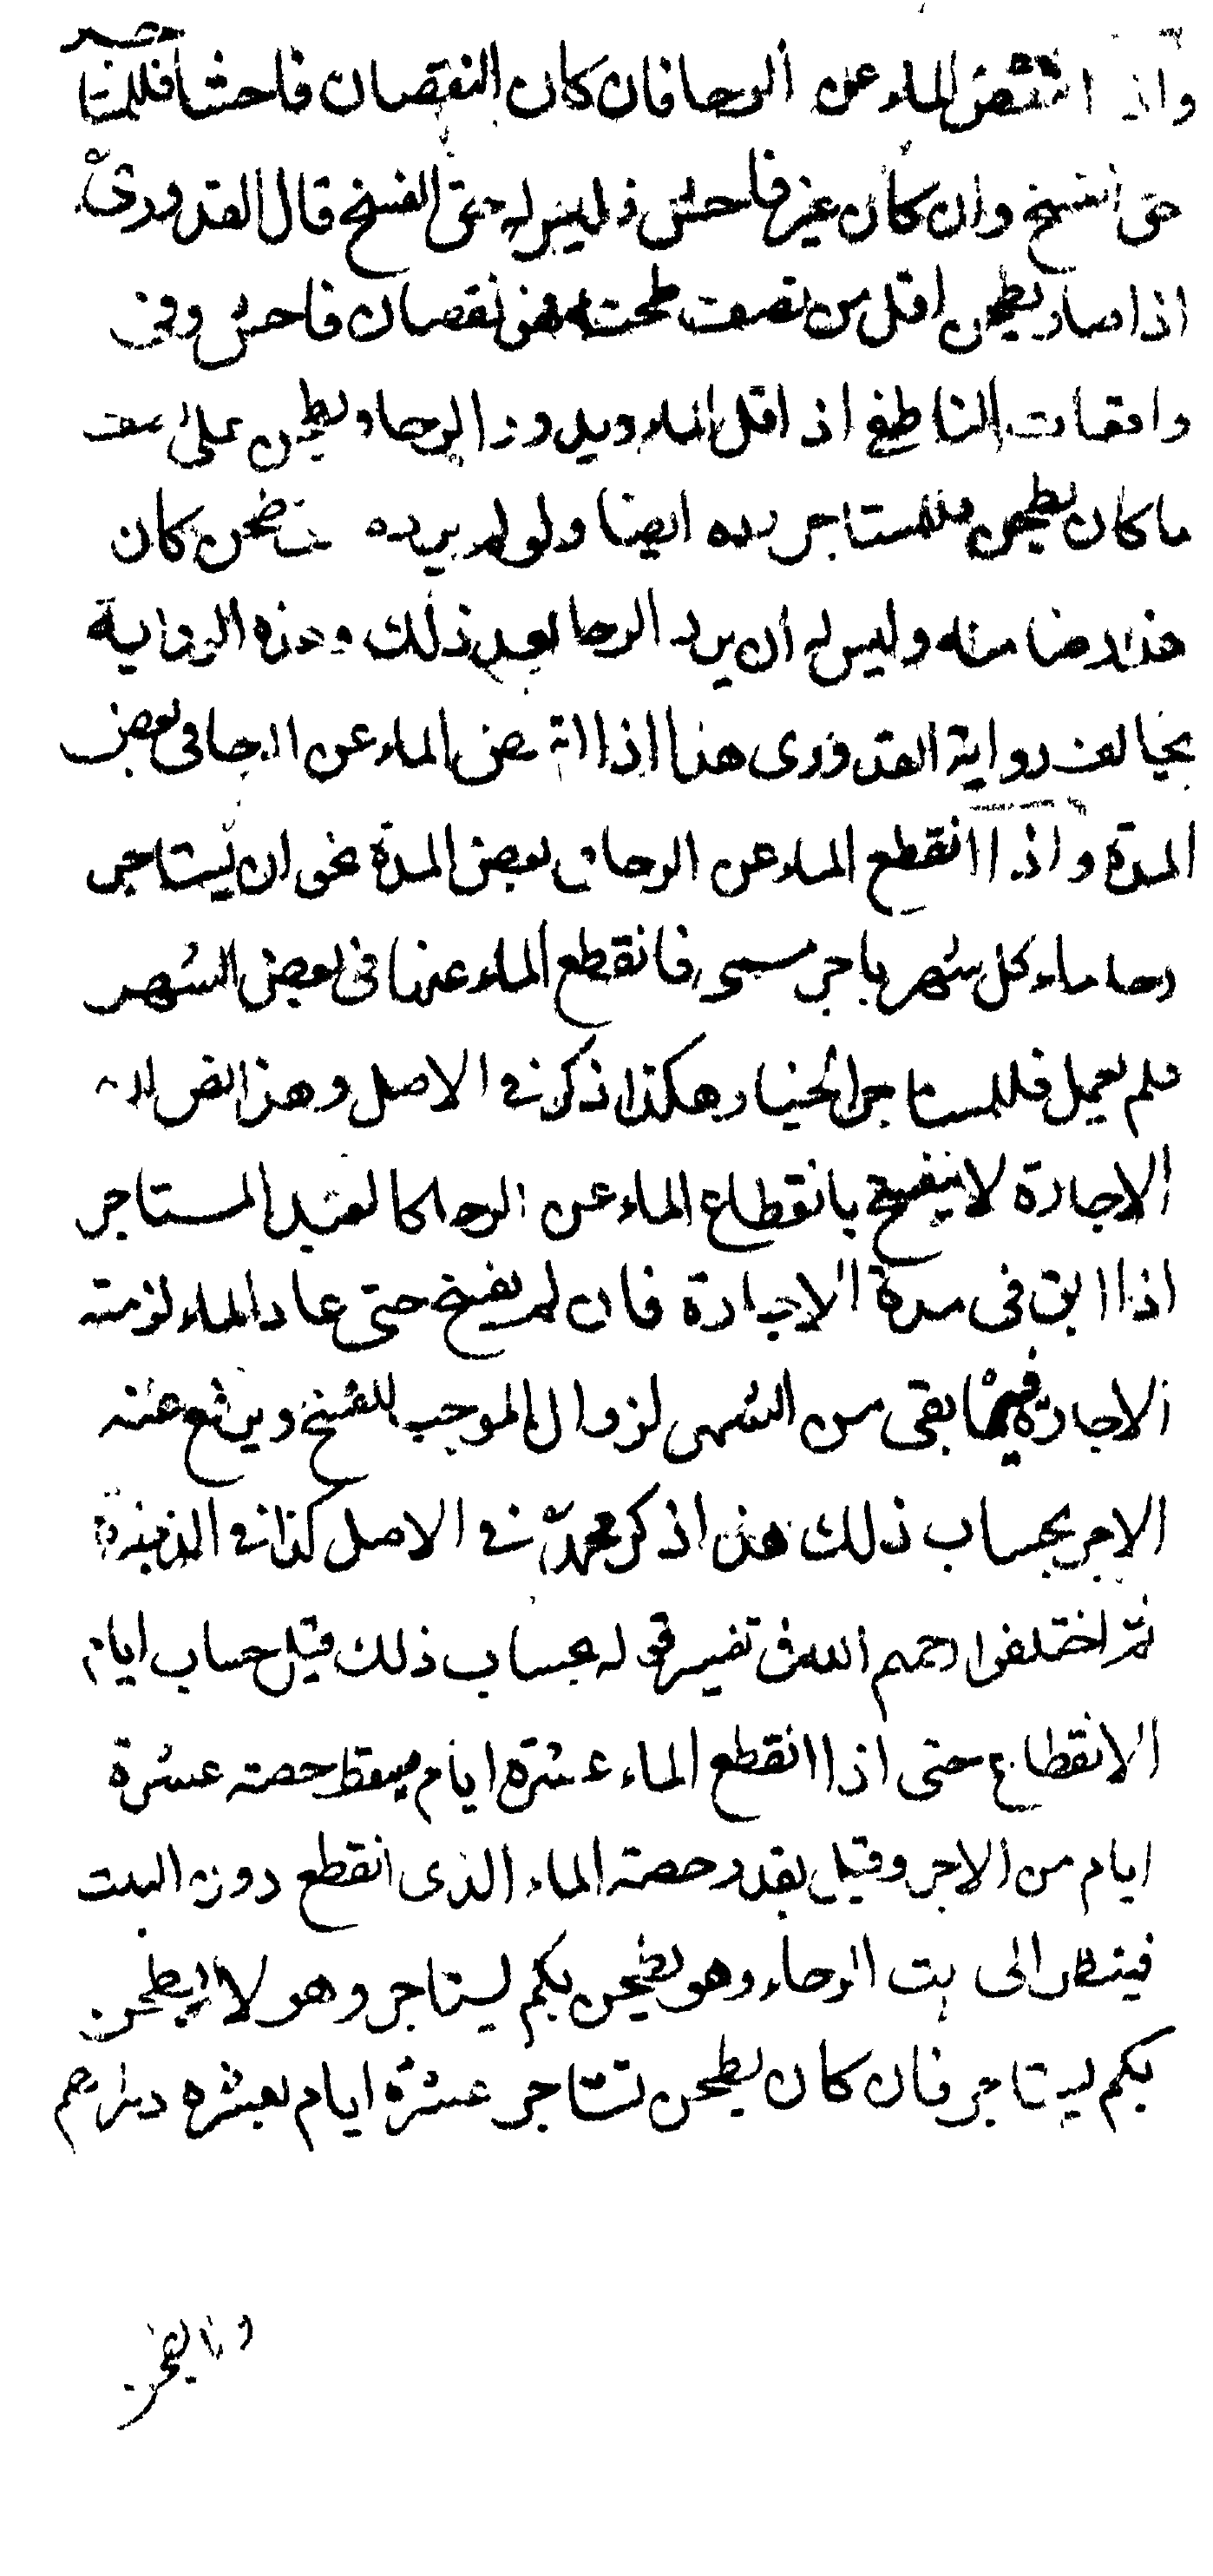 واذا انتقص الماء عن الرحا فان كان النقصان فاحشا فللمستاجر
حق الفسخ وان كان غير فاحش فليس له حق الفسخ قال القدوري
اذا صار يطحن اقل من نصف طحنه فهو نقصان فاحش وفي
واقعات الناطفي اذا قل الماء ويدور الرحا ويطحن على نصف
ما كان يطحن فللمستاجر رده ايضا ولو لم يرده حتى طحن كان
هذا رضا منه وليس له ان يرد الرحا بعد ذلك وهذه الرواية
يخالف رواية القدوري هذا اذا انتقص الماء عن الرحا في بعض
المدة واذا انقطع الماء عن الرحا في بعض المدة نحو ان يستاجر
رحا ماء كل شهر باجر مسمى فانقطع الماء عنها في بعض الشهر
فلم يعمل فللمستاجر الخيار هكذا ذكر في الاصل وهذا نص ان
الاجارة لا ينفسخ بانقطاع الماء عن الرحا كالعبد المستاجر
اذا ابق في مدة الاجارة فان لم يفسخ حتى عاد الماء لزمته
الاجارة فيما بقى من الشهر لزوال الموجب للفسخ ويرفع عنه
الاجر بحساب ذلك هذا ذكر محمد في الاصل كذا في الذخيرة
ثم اختلفوا رحمهم الله في تفسير قوله بحساب ذلك قيل حساب ايام
الانقطاع حتى اذا انقطع الماء عشرة ايام يسقط حصته عشرة
ايام من الاجر وقيل بقدر حصة الماء الذى انقطع دون البيت
فينظر الى بيت الرحاء وهو يطحن بكم يستاجر وهو لا يطحن
بكم يستاجر فان كان يطحن تستاجر عشرة ايام بعشرة دراهم